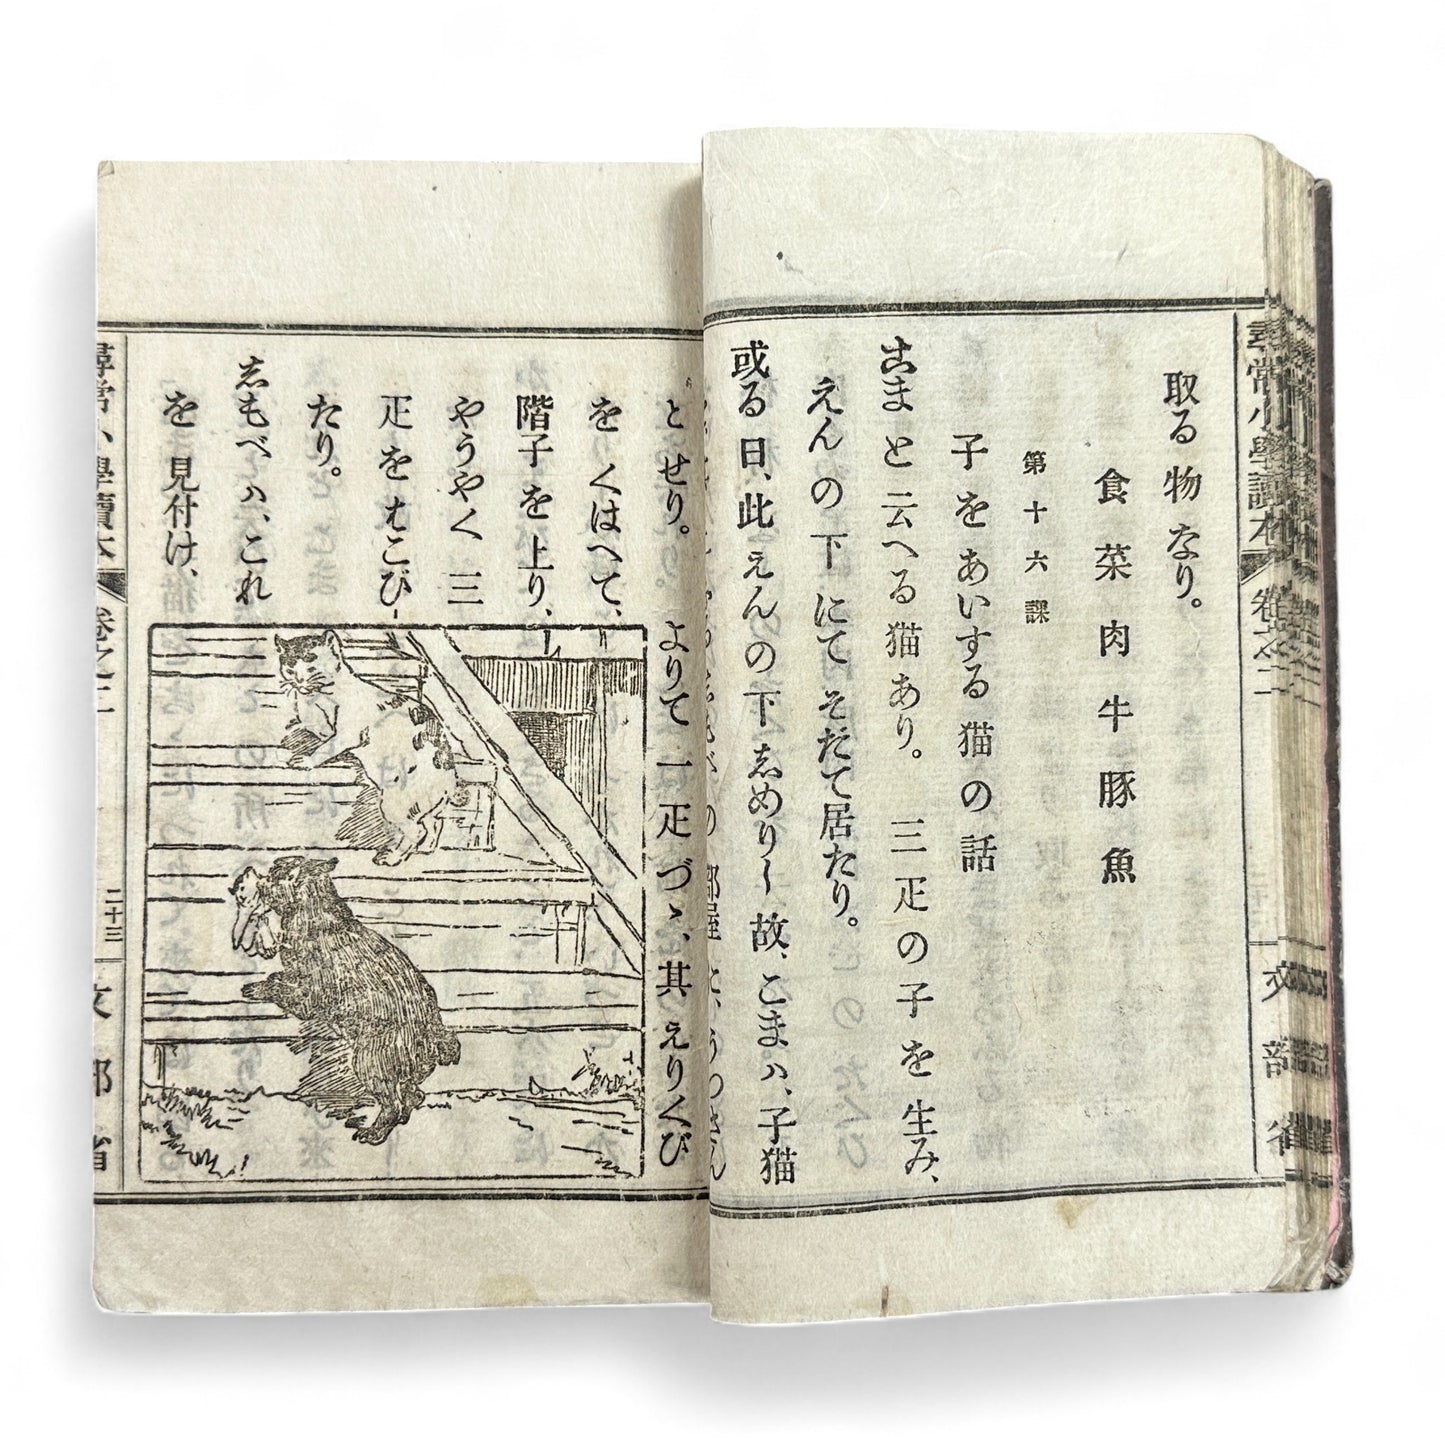 尋常小學讀本 卷之二
文部省
取る物なり。
食菜肉牛豚魚
第十六課
子をあいする猫の話
こまと云へる猫あり。三疋の子を生み、
えんの下にてそだて居たり。
或る日、此えんの下しめりし故、こまハ、子猫
部屋に、うつさん
とせり。よりて一疋づゝ、其えりくび
をくはへて、
階子を上り、
やうやく三
疋をはこび
たり。
しもべハ、これ
を見付け、
尋常小學讀本 卷之二 二十三 文部省